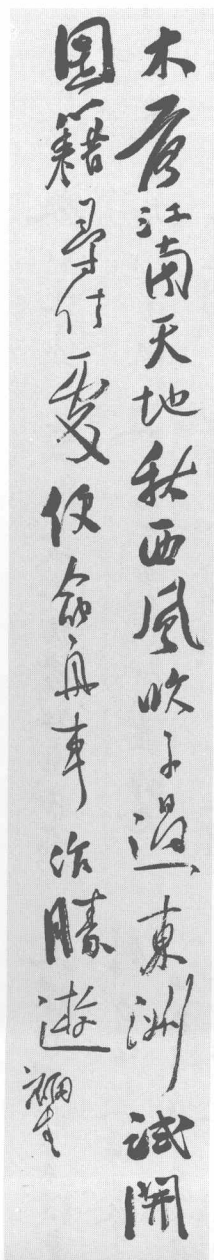 木落江南天地秋西風吹子過東洲試開
圖籍尋佳處便命舟車作勝遊